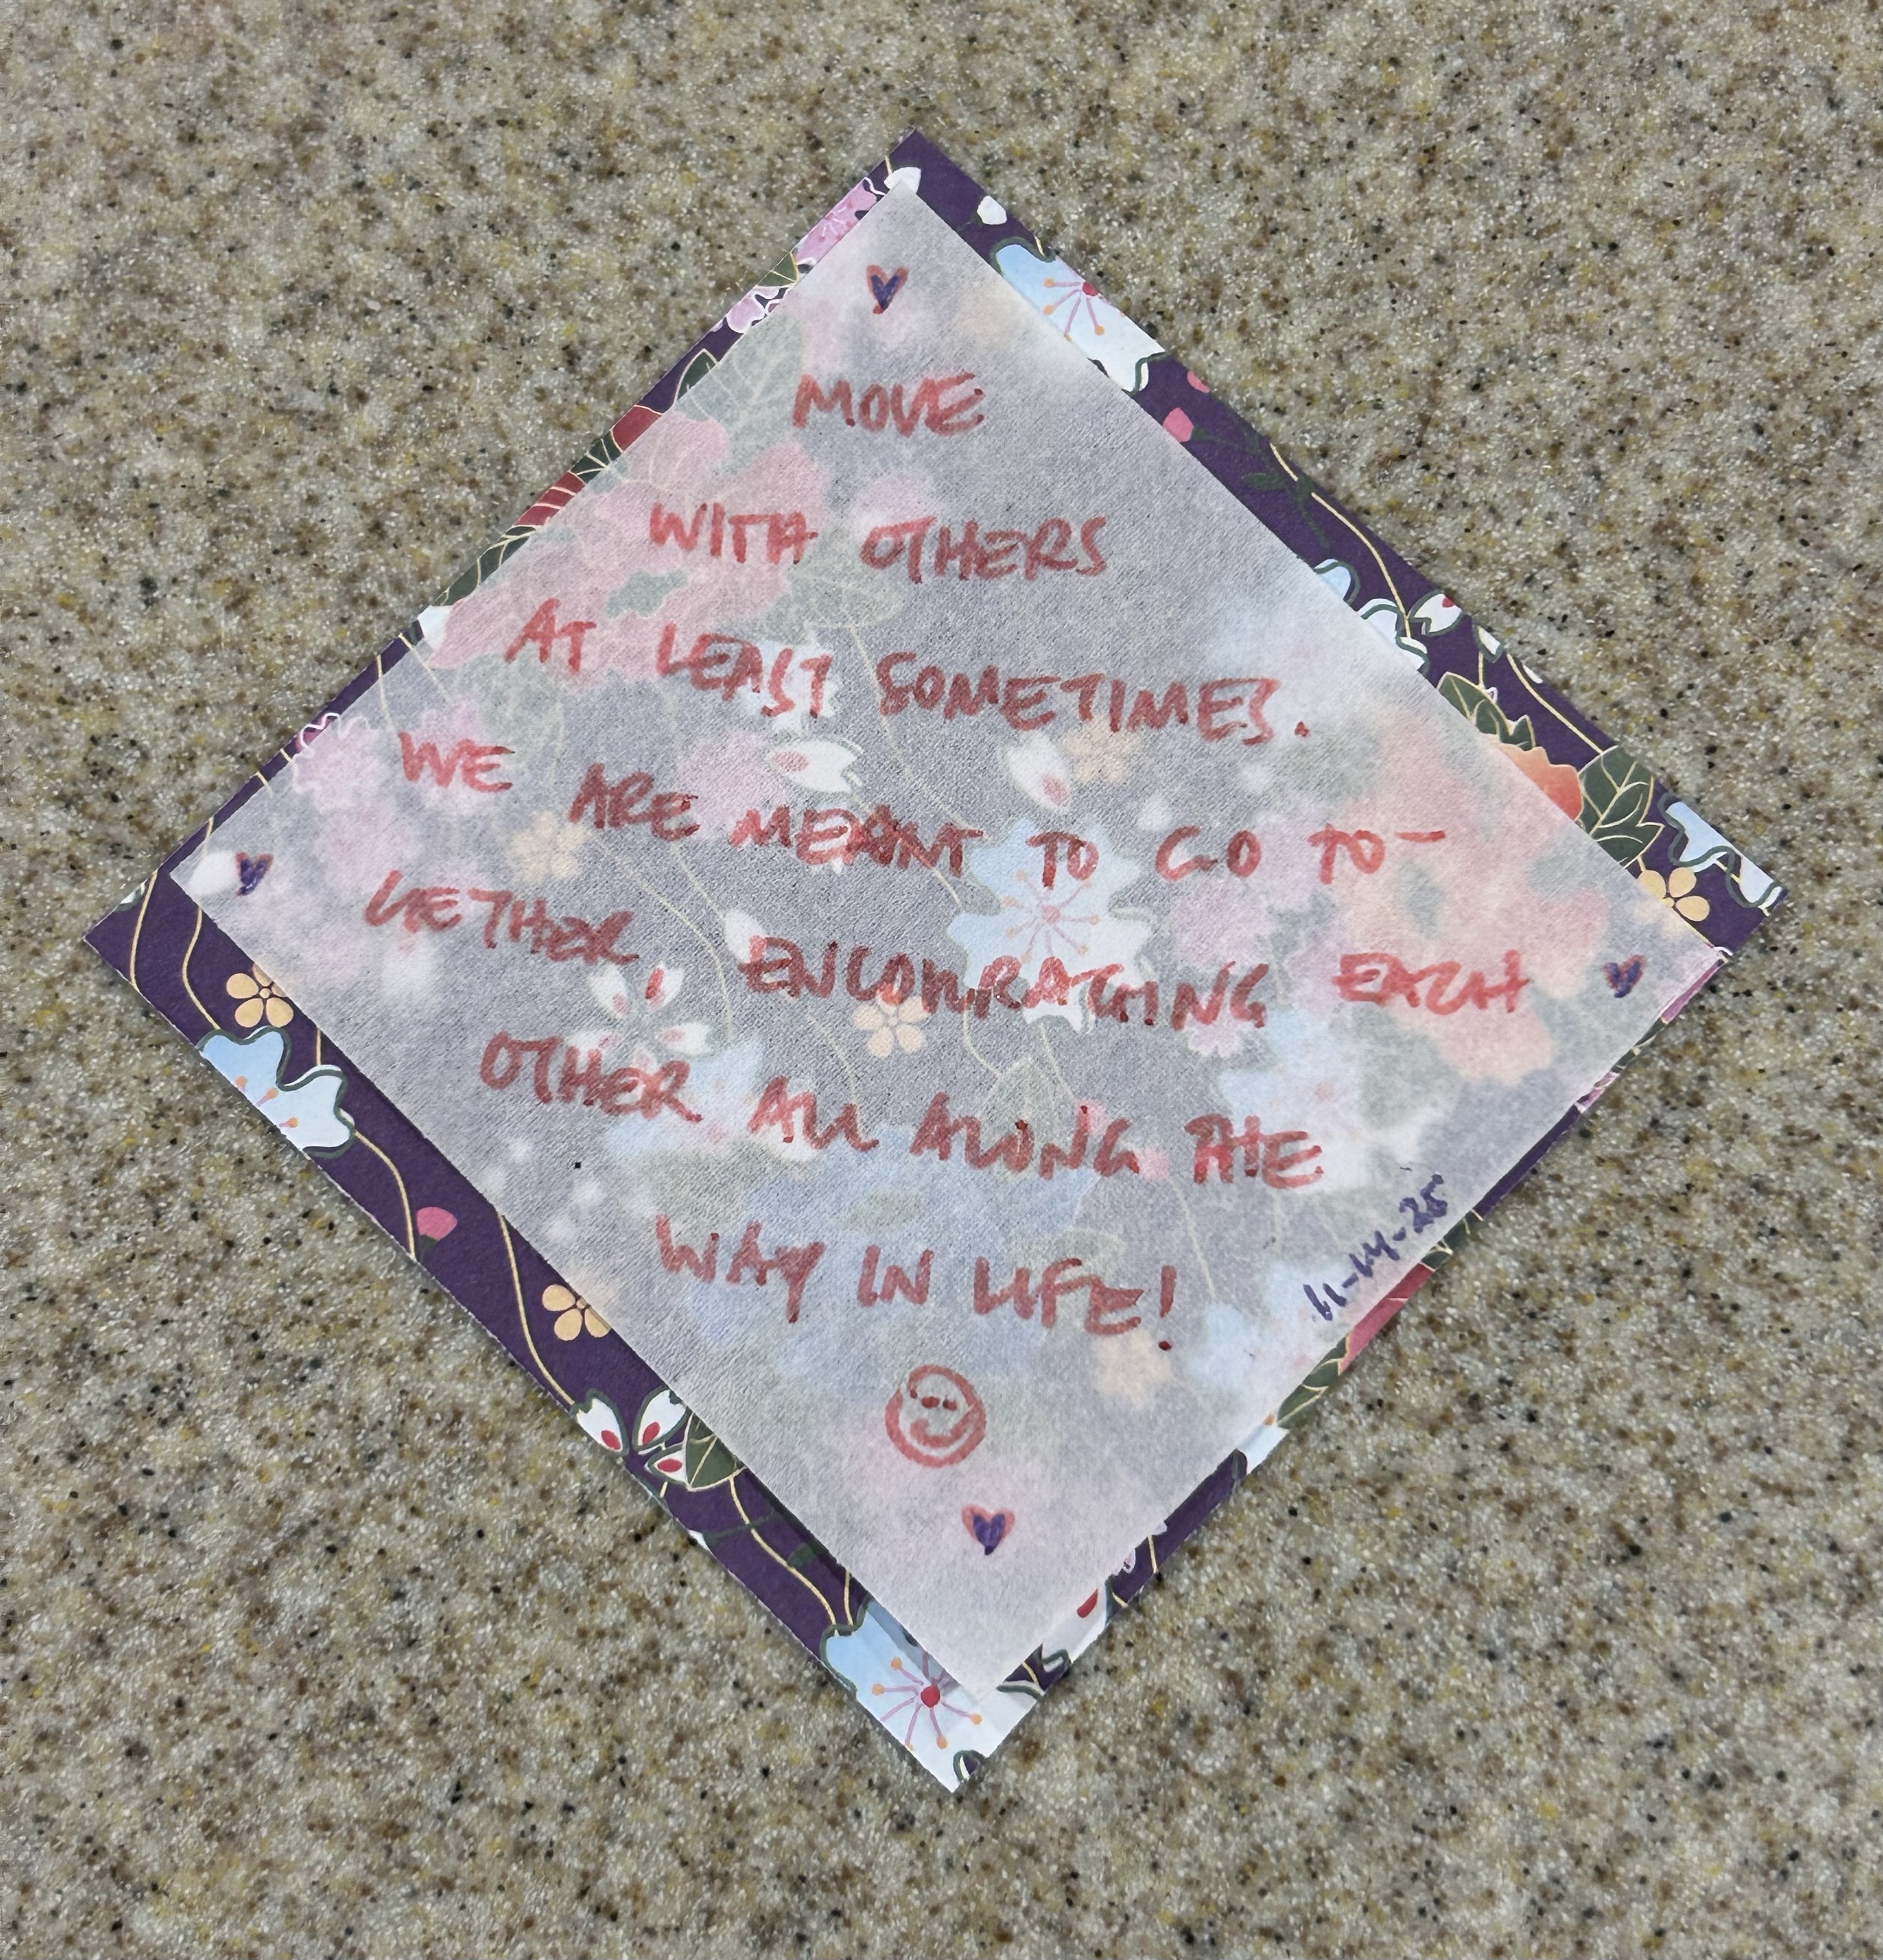 MOVE
WITH OTHERS
AT LEAST SOMETIMES.
WE ARE MEANT TO GO TO-
GETHER, ENCOURAGING EACH
OTHER ALL ALONG THE
WAY IN LIFE!
11-14-25